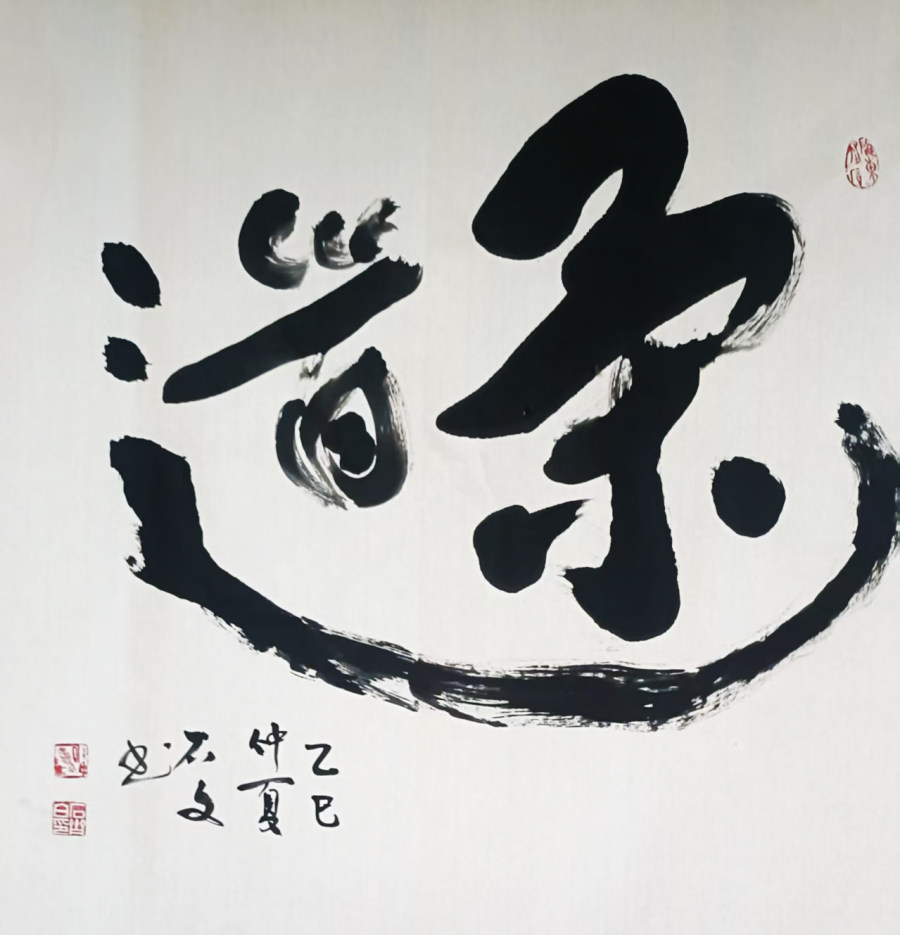 柔道
乙巳
仲夏
石文
书